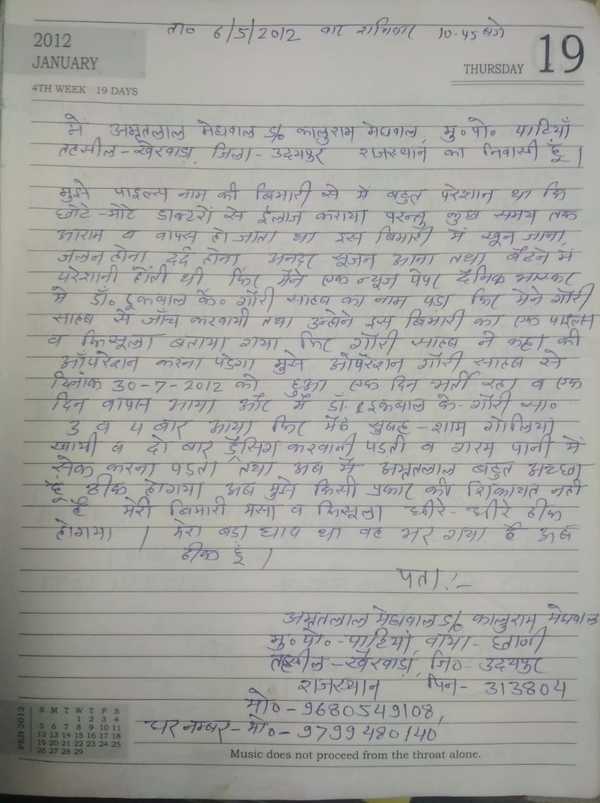 2012
JANUARY
4TH WEEK 19 DAYS
ता० 6/5/2012 वार शनिवार 10-45 बजे
THURSDAY 19
में अमृतलाल मेघवाल S/o कालुराम मेघवाल, मु० पो० पाटियाँ
तहसील-खेरवाडा, जिला-उदयपुर राजस्थान का निवासी हूँ।
मुझे पाइल्स नाम की बिमारी से में बहुत परेशान था कि
छोटे-मोटे डाक्टरों से ईलाज कराया परन्तु कुछ समय तक
आराम व वापस हो जाता था इस बिमारी में खून जाना,
जलन होना दर्द होना अन्दर सूजन आना तथा बैठने में
परेशानी होती थी फिर मैंने एक न्यूज पेपर दैनिक भास्कर
मे डाँ० इकबाल के० गौरी साहब का नाम पडा फिर मैंने गौरी
साहब से जाँच करवायी तथा उन्होने इस बिमारी का एक पाइल्स
व फिस्टूला बताया गया फिर गौरी साहब ने कहा की
ऑपरेशन करना पडेगा मुझे ओपरेशन गौरी साहब से
दिनांक 30-7-2012 को हुआ एक दिन भर्ती रहा व एक
दिन वापस आया और मैं डॉ इकबाल के- गौरी सा०
3 व 4 बार आया फिर मैंने सुबह-शाम गोलियाँ
खायी व दो बार ड्रेसिंग करवानी पडती व गरम पानी में
सेक करना पडता तथा अब मैं अमृतलाल बहुत अच्छा
हूँ ठीक होगया अब मुझे किसी प्रकार की शिकायत नही
है मेरी बिमारी मसा व फिस्टूला धीरे-धीरे ठीक
होगया। मेरा बडा घाव था वह भर गया है अब
ठीक हूं।
पता:-
अमृतलाल मेघवाल S/o कालुराम मेघवाल
मु० पो०-पाटियाँ, वाया-छाणी
तहसील-खेरवाडा, जि०-उदयपुर
राजस्थान पिन-313804
मो०-9680549108,
घर नम्बर-मो०-9799480140
FEB 2012
S M T W T F S
1 2 3 4
5 6 7 8 9 10 11
12 13 14 15 16 17 18
19 20 21 22 23 24 25
26 27 28 29
Music does not proceed from the throat alone.